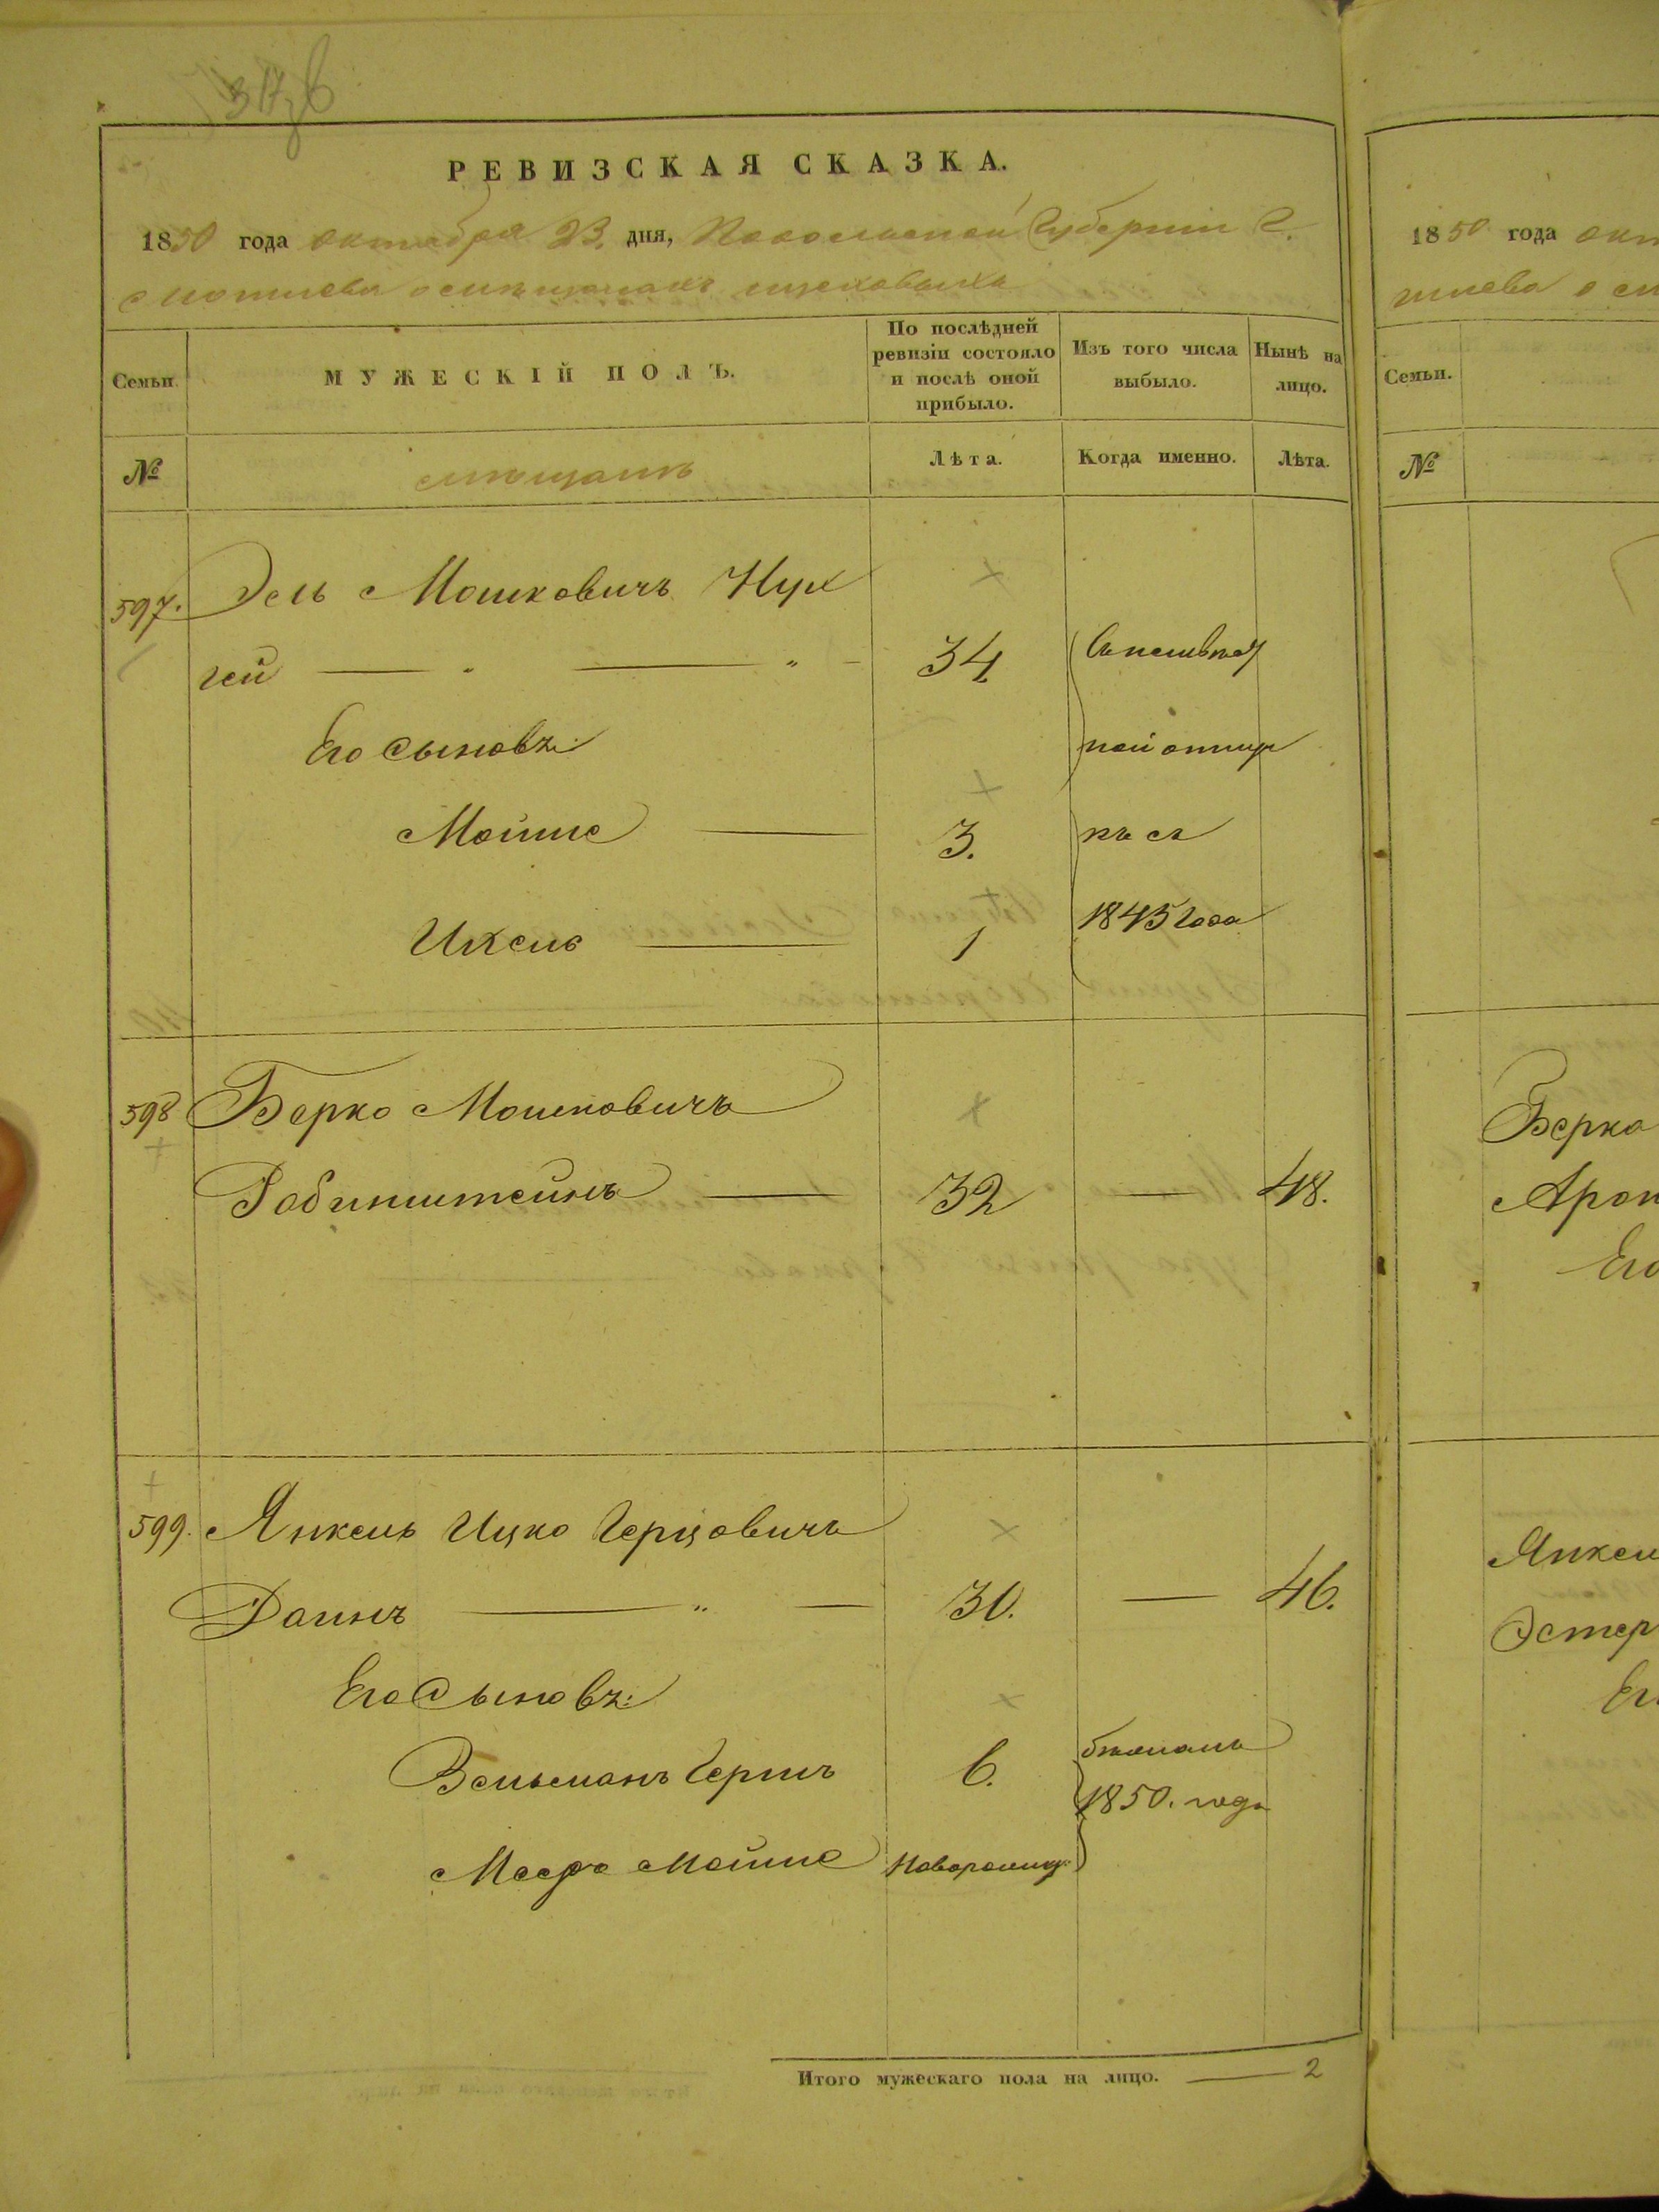 РЕВИЗСКАЯ СКАЗКА.
1850 года октября 23. дня, Подольской Губернии Г.
Могилева о мѣщанахъ цеховыхъ
Семьи.
МУЖЕСКІЙ ПОЛЪ.
По послѣдней ревизіи состояло и послѣ оной прибыло.
Изъ того числа выбыло.
Нынѣ на лицо.
№
мѣщанъ
Лѣта.
Когда именно.
Лѣта.
597. Эль Мошковичъ Кух
гей 34
Его сыновья:
ной отлуч
Мойше 3.
кѣ съ
Икель 1
1845 года
598 Берко Мошковичъ
Рабинштейнъ 32 48.
599. Янкель Ицко Герцовичъ
Даинъ 30. 46.
Его Сыновья:
Вельманъ Гершъ 6.
бѣжалъ
1850. года
Меер Мойше Новорожд:
Итого мужескаго пола на лицо. 2
1850 года окт
гилева о м
Семьи.
№
Берка
Арон
Его
Янкел
Эстер
Ег